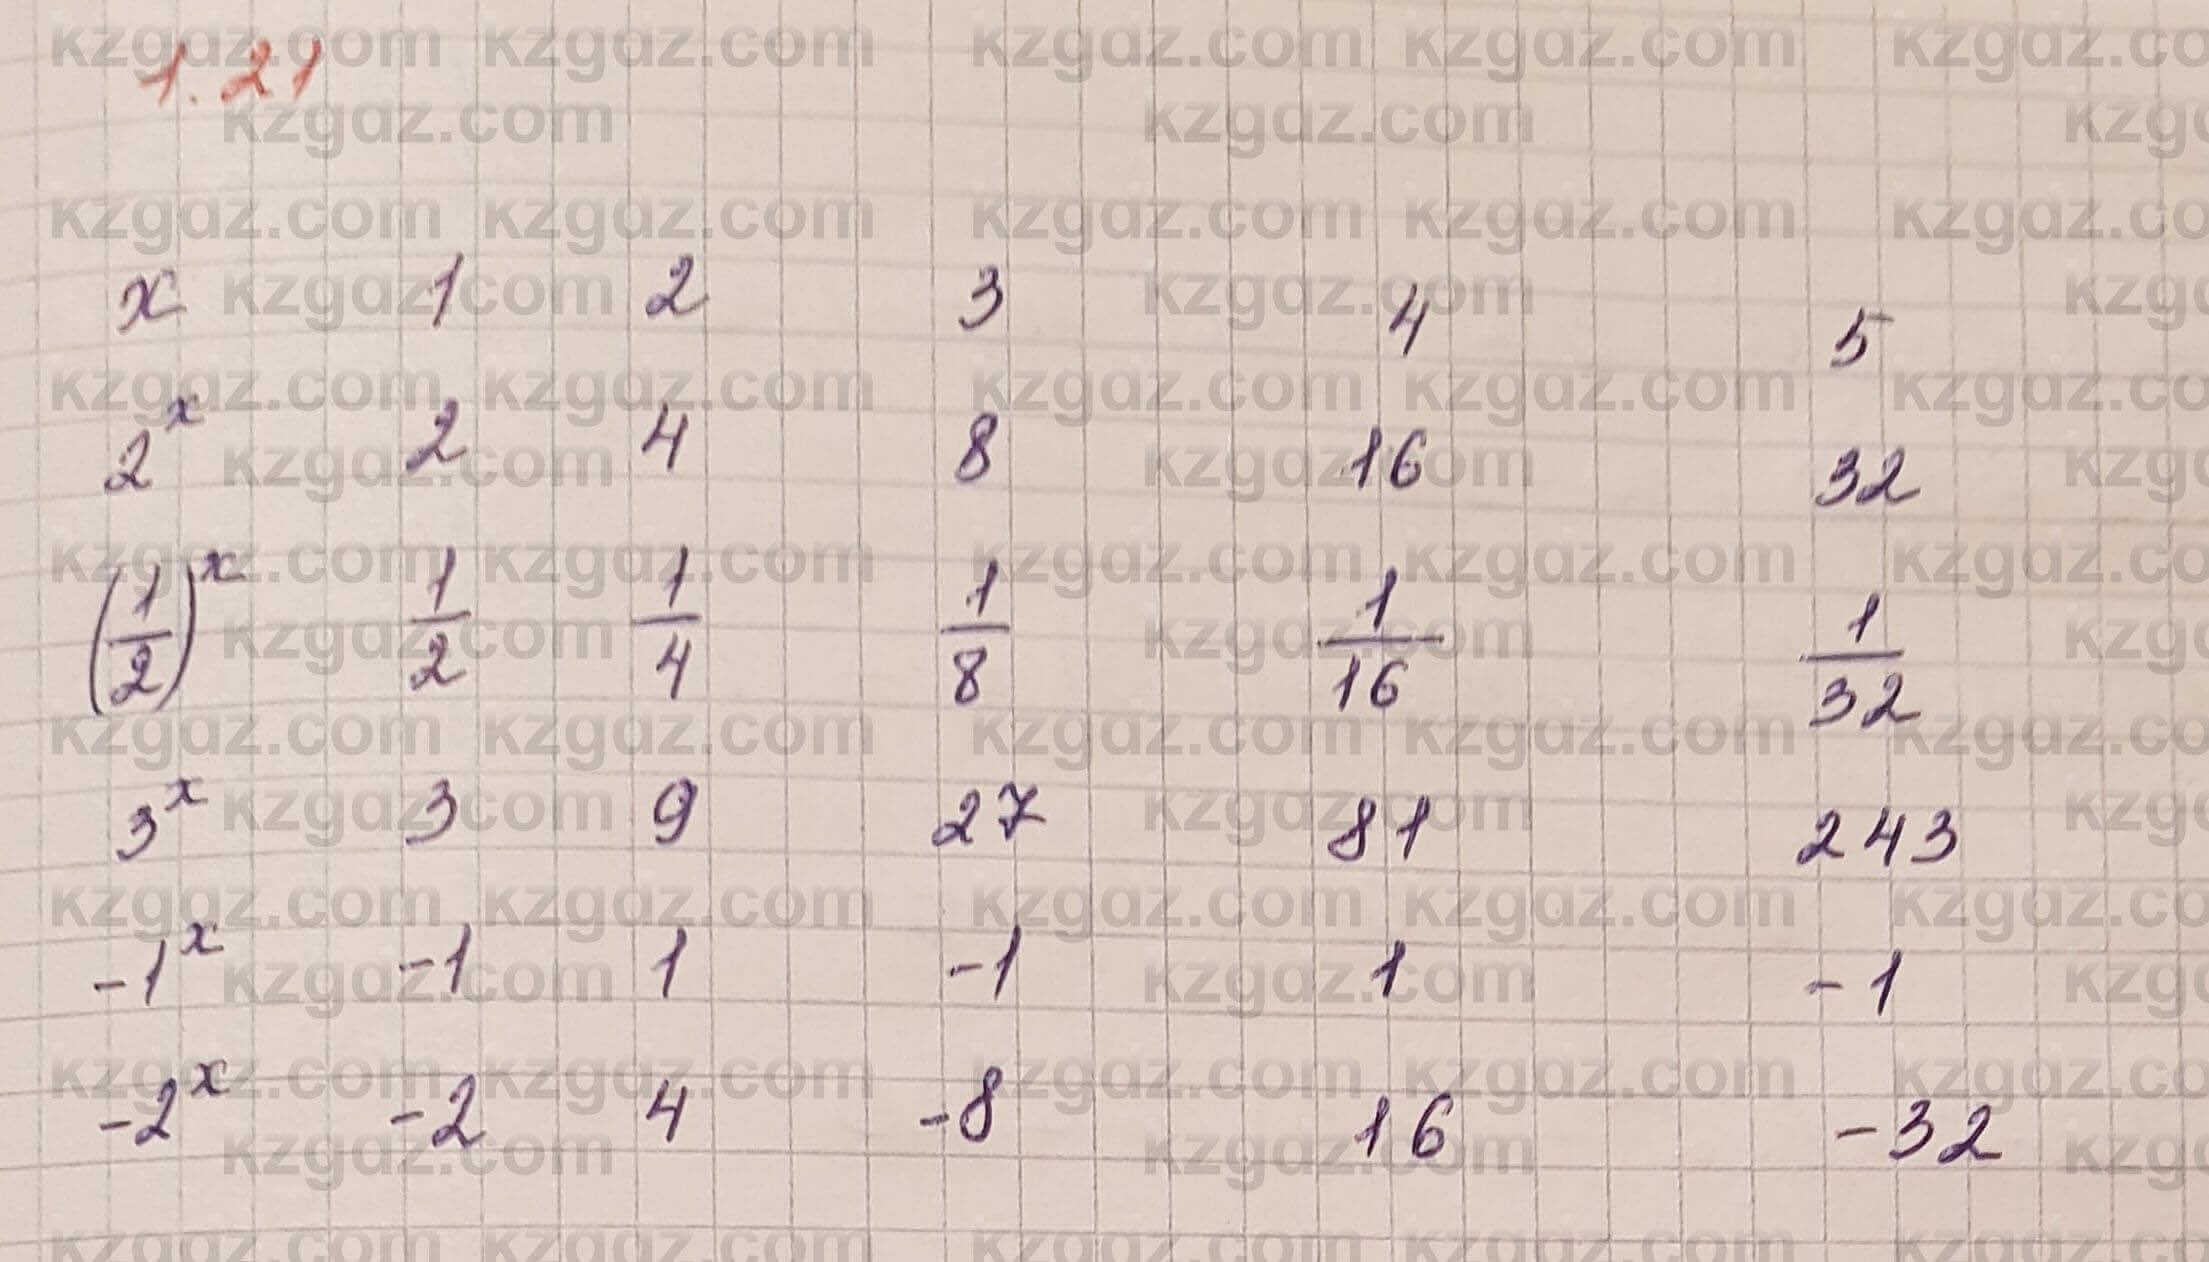 1.21
x 1 2 3 4 5
2^x 2 4 8 16 32
(1/2)^x 1/2 1/4 1/8 1/16 1/32
3^x 3 9 27 81 243
-1^x -1 1 -1 1 -1
-2^x -2 4 -8 16 -32
kzgaz.com